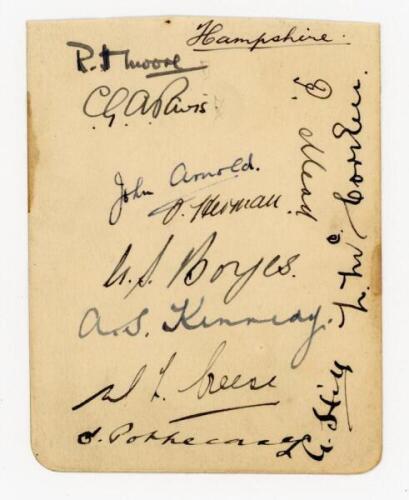 Hampshire.
R. H. Moore
C.G.A. Paris.
John Arnold.
O. Herman.
G.S. Boyes.
A.S. Kennedy.
W L Creese
S. Pothecary
P Mead
N. McCorkell
G. Hill